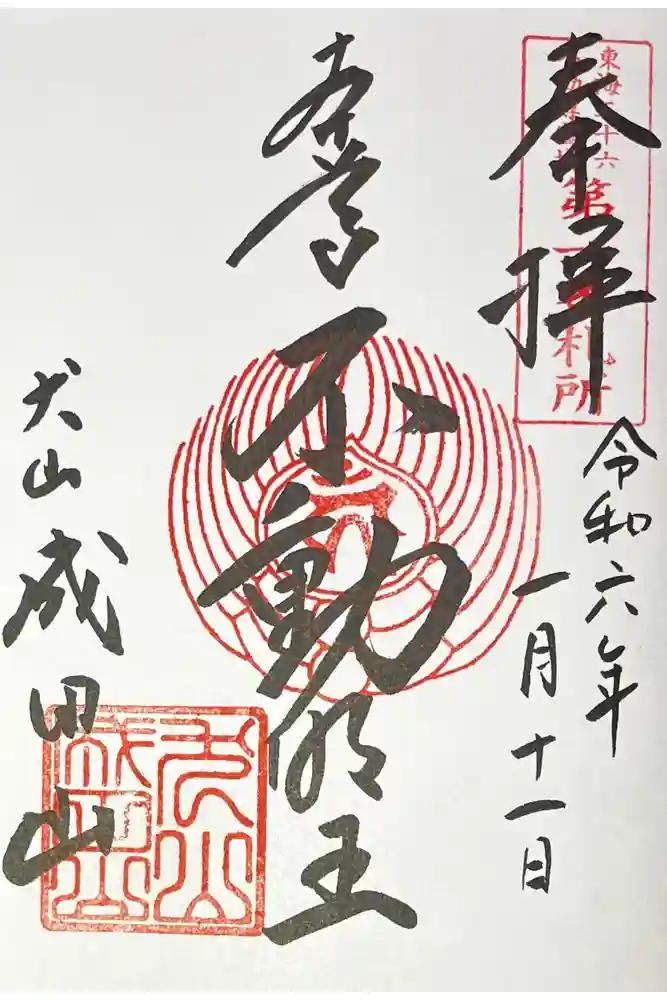 奉拝
東海三十六
第一番札所
令和六年
一月十一日
本尊
不動明王
犬山
成田山
犬山
成田山